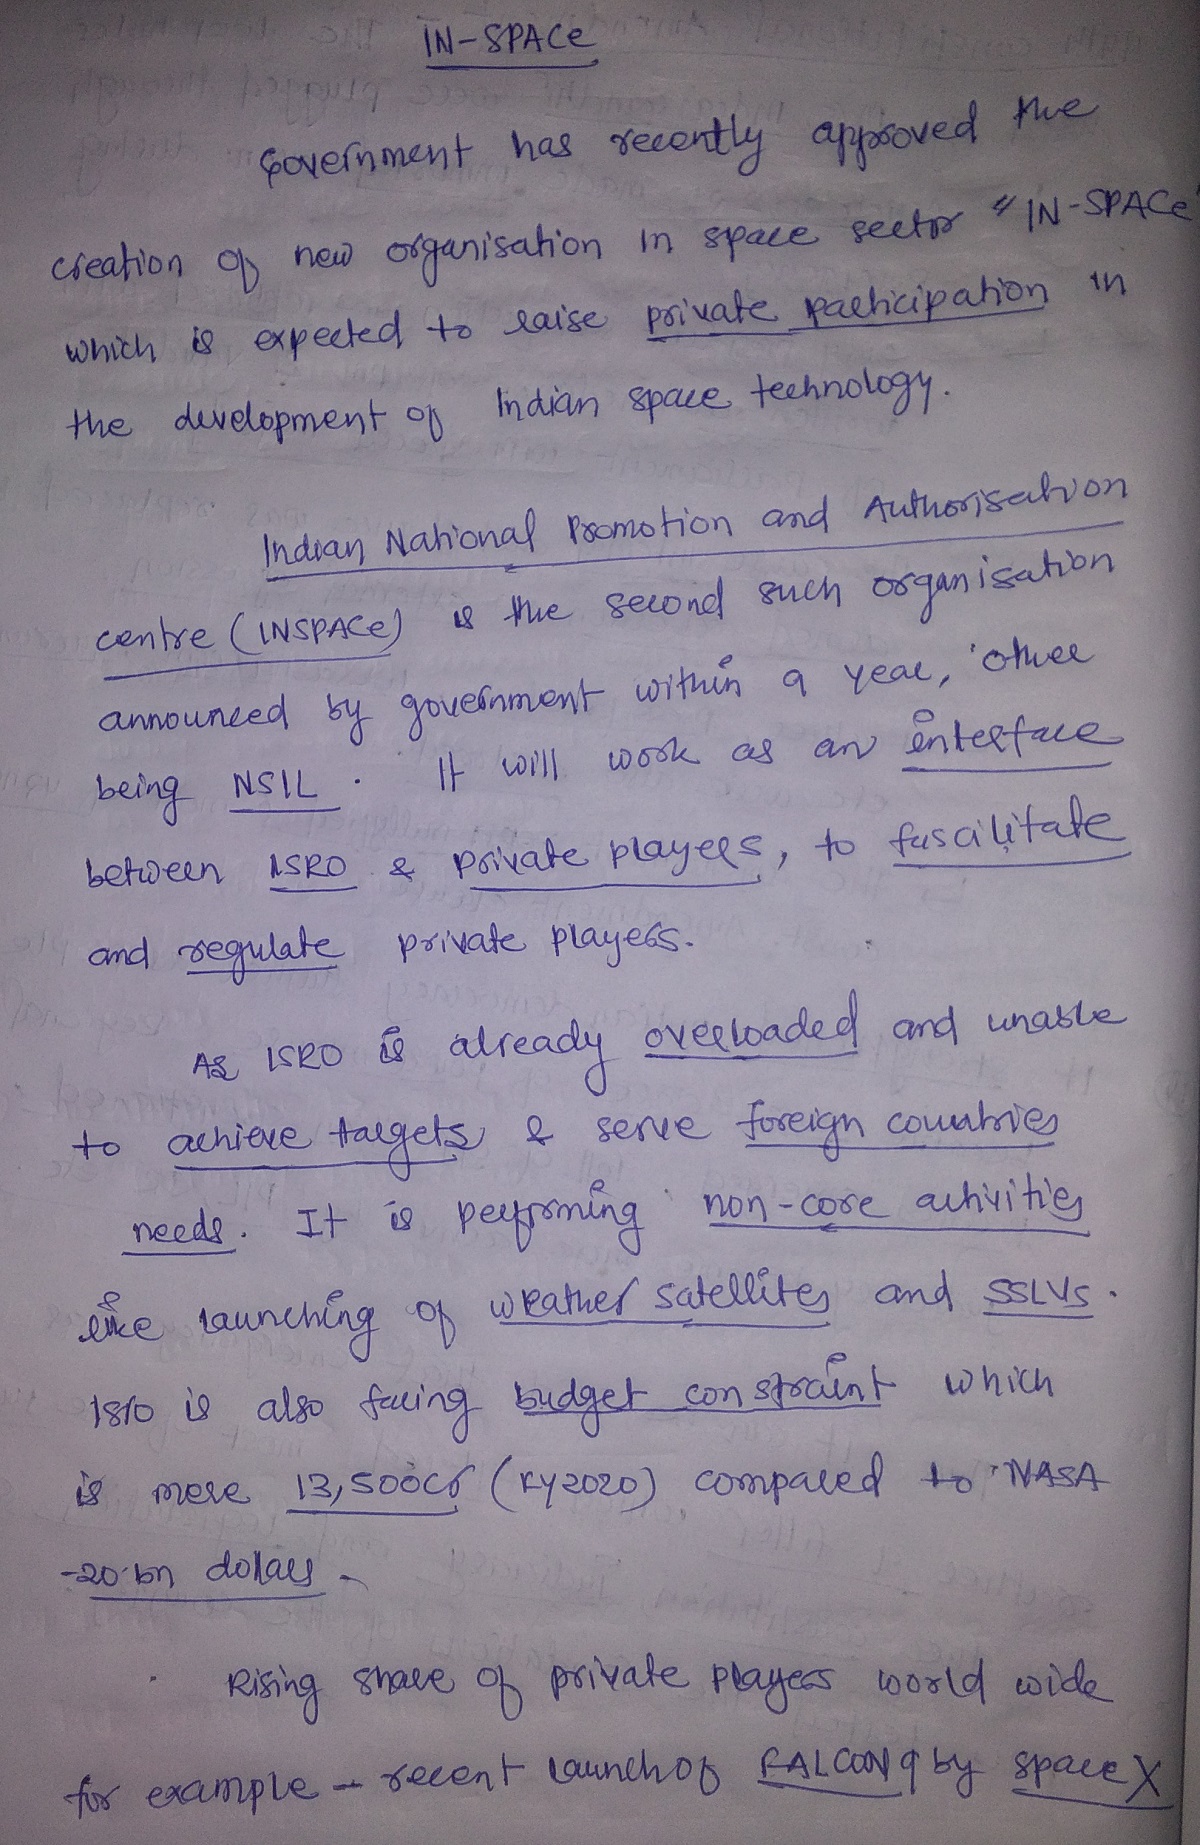 IN-SPACe
Government has recently approved the
creation of new organisation in space sector "IN-SPACe"
which is expected to raise private participation in
the development of Indian space technology.
Indian National Promotion and Authorisation
centre (INSPACe) is the second such organisation
announced by government within a year, other
being NSIL. It will work as an interface
between ISRO & private players, to fascilitate
and regulate private players.
As ISRO is already overloaded and unable
to achieve targets & serve foreign countries
needs. It is performing non-core activities
like launching of weather satellites and SSLVs.
ISRO is also facing budget constraint which
is mere 13,500cr (KY2020) compared to NASA
-20 bn dollars
Rising share of private players world wide
for example - recent launch of FALCON 9 by space X